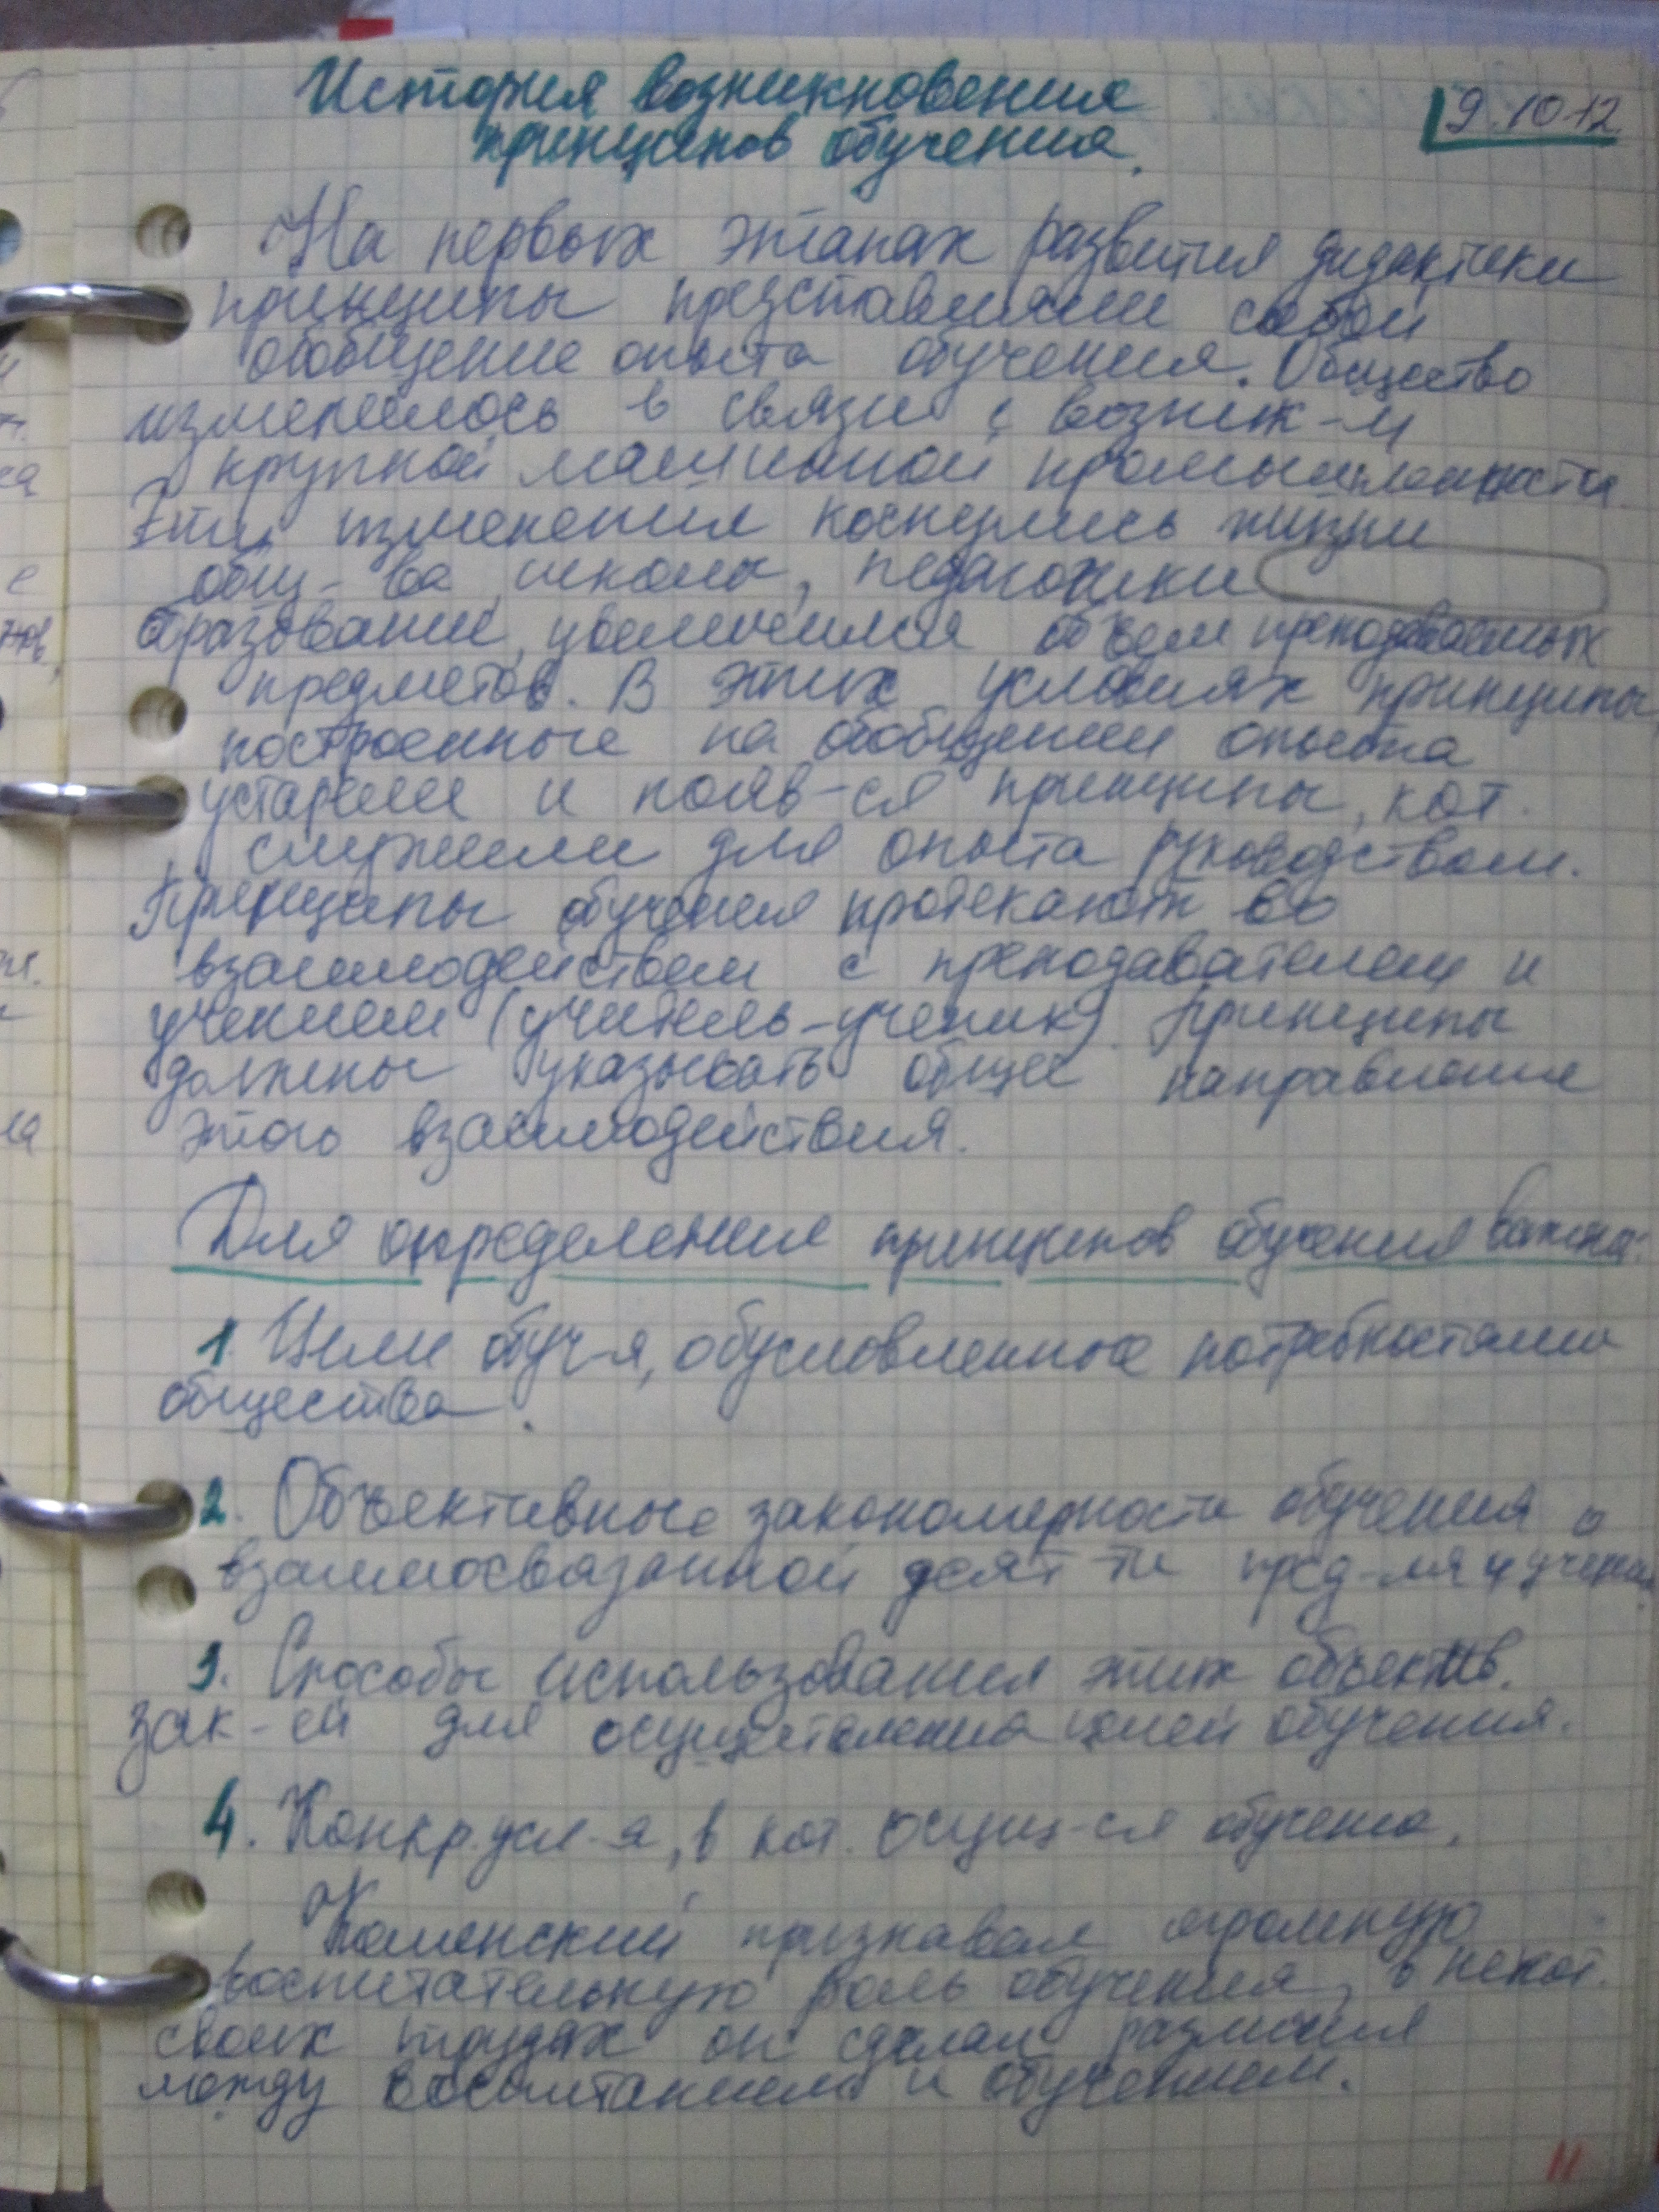 История возникновения
принципов обучения.
9.10.12
На первых этапах развития дидактики
принципы представляли собой
обобщение опыта обучения. Общество
изменилось в связи с возник-м
крупной машинной промышленности.
Эти изменения коснулись жизни
общ-ва, школы, педагогики
образование, увеличился объем преподаваемых
предметов. В этих условиях принципы,
построенные на обобщении опыта
устарели и появ-ся принципы, кот.
служили для опыта руководством.
Принципы обучения протекают во
взаимодействии с преподавателем и
учением (учитель-ученик). Принципы
должны указывать общее направление
этого взаимодействия.
Для определения принципов обучения важны:
1. Цели обуч-я, обусловленные потребностями
общества.
2. Объективные закономерности обучения о
взаимосвязанной деят-ти пред-ля и ученика.
3. Способы использования этих объектив.
зак-ей для осуществления целей обучения.
4. Конкр. усл-я, в кот. осущ-ся обучение.
Коменский признавал огромную
воспитательную роль обучения, в некот.
своих трудах он сделал различия
между воспитанием и обучением.
11